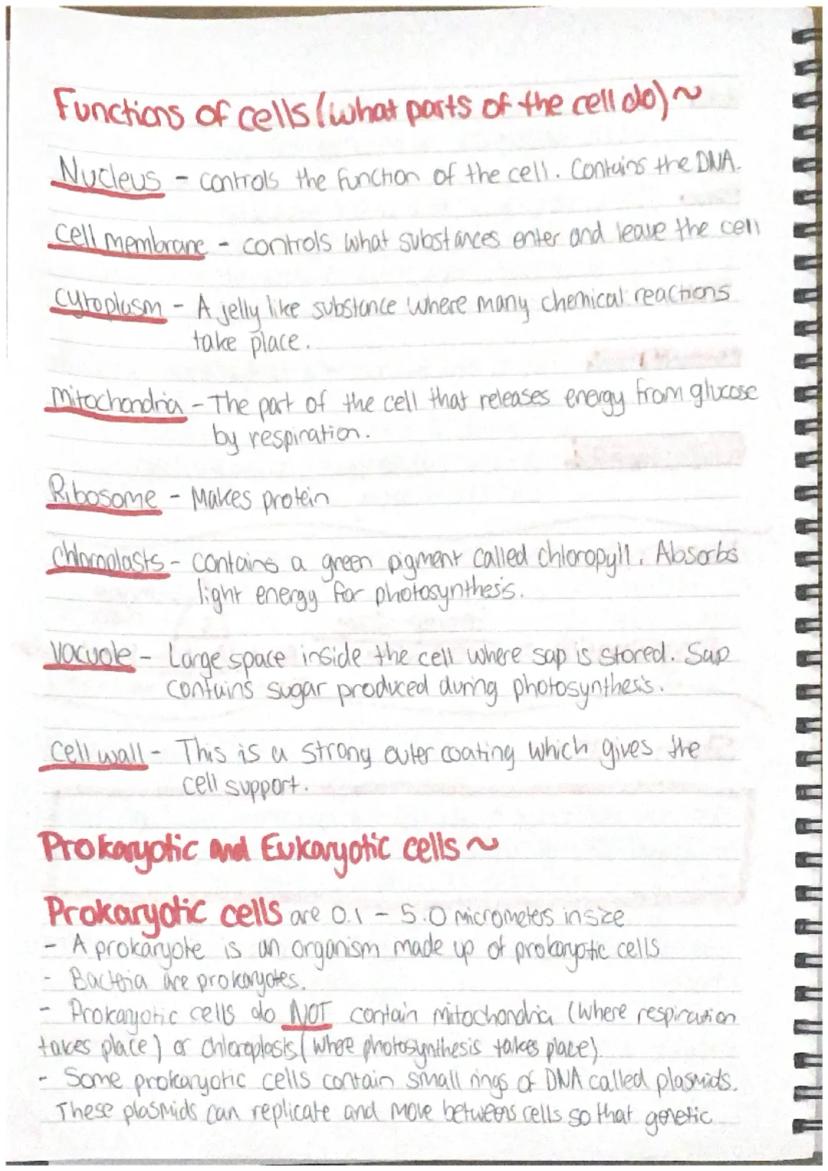 Functions of cells (what parts of the cell do) ~
Nucleus - controls the function of the cell. Contains the DNA.
Cell membrane - controls what substances enter and leave the cell
Cytoplasm - A jelly like substance where many chemical reactions
take place.
Mitochondria - The part of the cell that releases energy from glucose
by respiration.
Ribosome - Makes protein
Chloroplasts - contains a green pigment called chloropyll. Absorbs
light energy for photosynthesis.
Vacuole - Large space inside the cell where sap is stored. Sap
contains sugar produced during photosynthesis.
Cell wall - This is a strong outer coating which gives the
cell support.
Prokaryotic and Eukaryotic cells ~
Prokaryotic cells are 0.1 - 5.0 micrometers in size
- A prokaryote is an organism made up of prokaryotic cells
- Bacteria are prokaryotes.
- Prokaryotic cells do NOT contain mitochondria (where respiration
takes place) or chloroplasts (where photosynthesis takes place).
- Some prokaryotic cells contain small rings of DNA called plasmids.
These plasmids can replicate and move betweens cells so that genetic